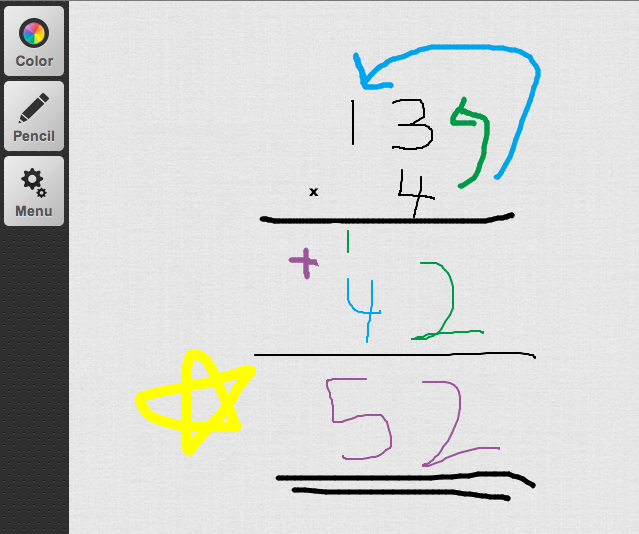 Color
Pencil
Menu
13
x 4
1
+ 42
52